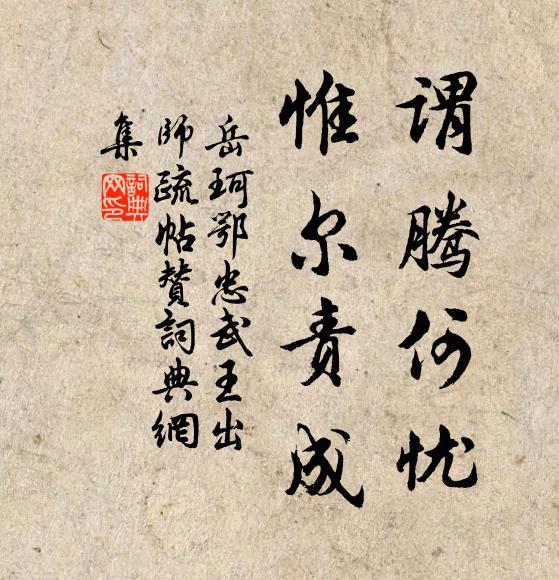 谓腾何忧
惟尔责成
岳珂鄂忠武王出
师疏帖赞词典網
集
詞典網印